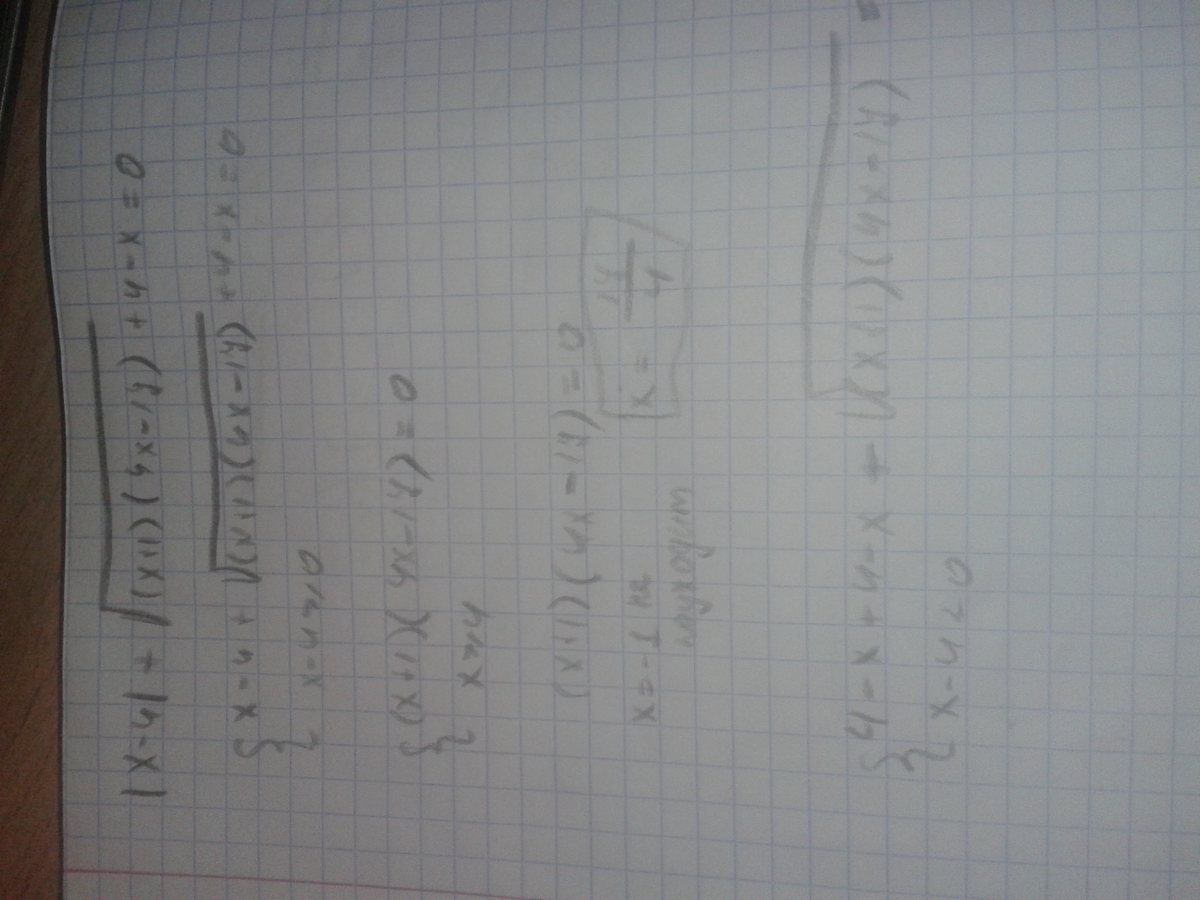 |x-4| + √(x+1)(4x-17) + 4-x = 0
{ x-4 + √(x+1)(4x-17) + 4-x = 0
x-4 ≥ 0
{ (x+1)(4x-17) = 0
x ≥ 4
(x+1)(4x-17) = 0
x = -1 не подходит
x = 17/4
{ 4-x + 4-x + √(x+1)(4x-17) =
x-4 < 0